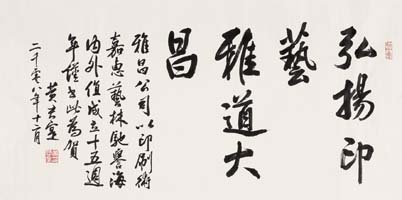 弘揚印
藝
雅道大
昌
雅昌公司以印刷術
嘉惠藝林馳譽海
內外值成立十五週
年謹書此為賀
二千零八年十二月
黃苗子